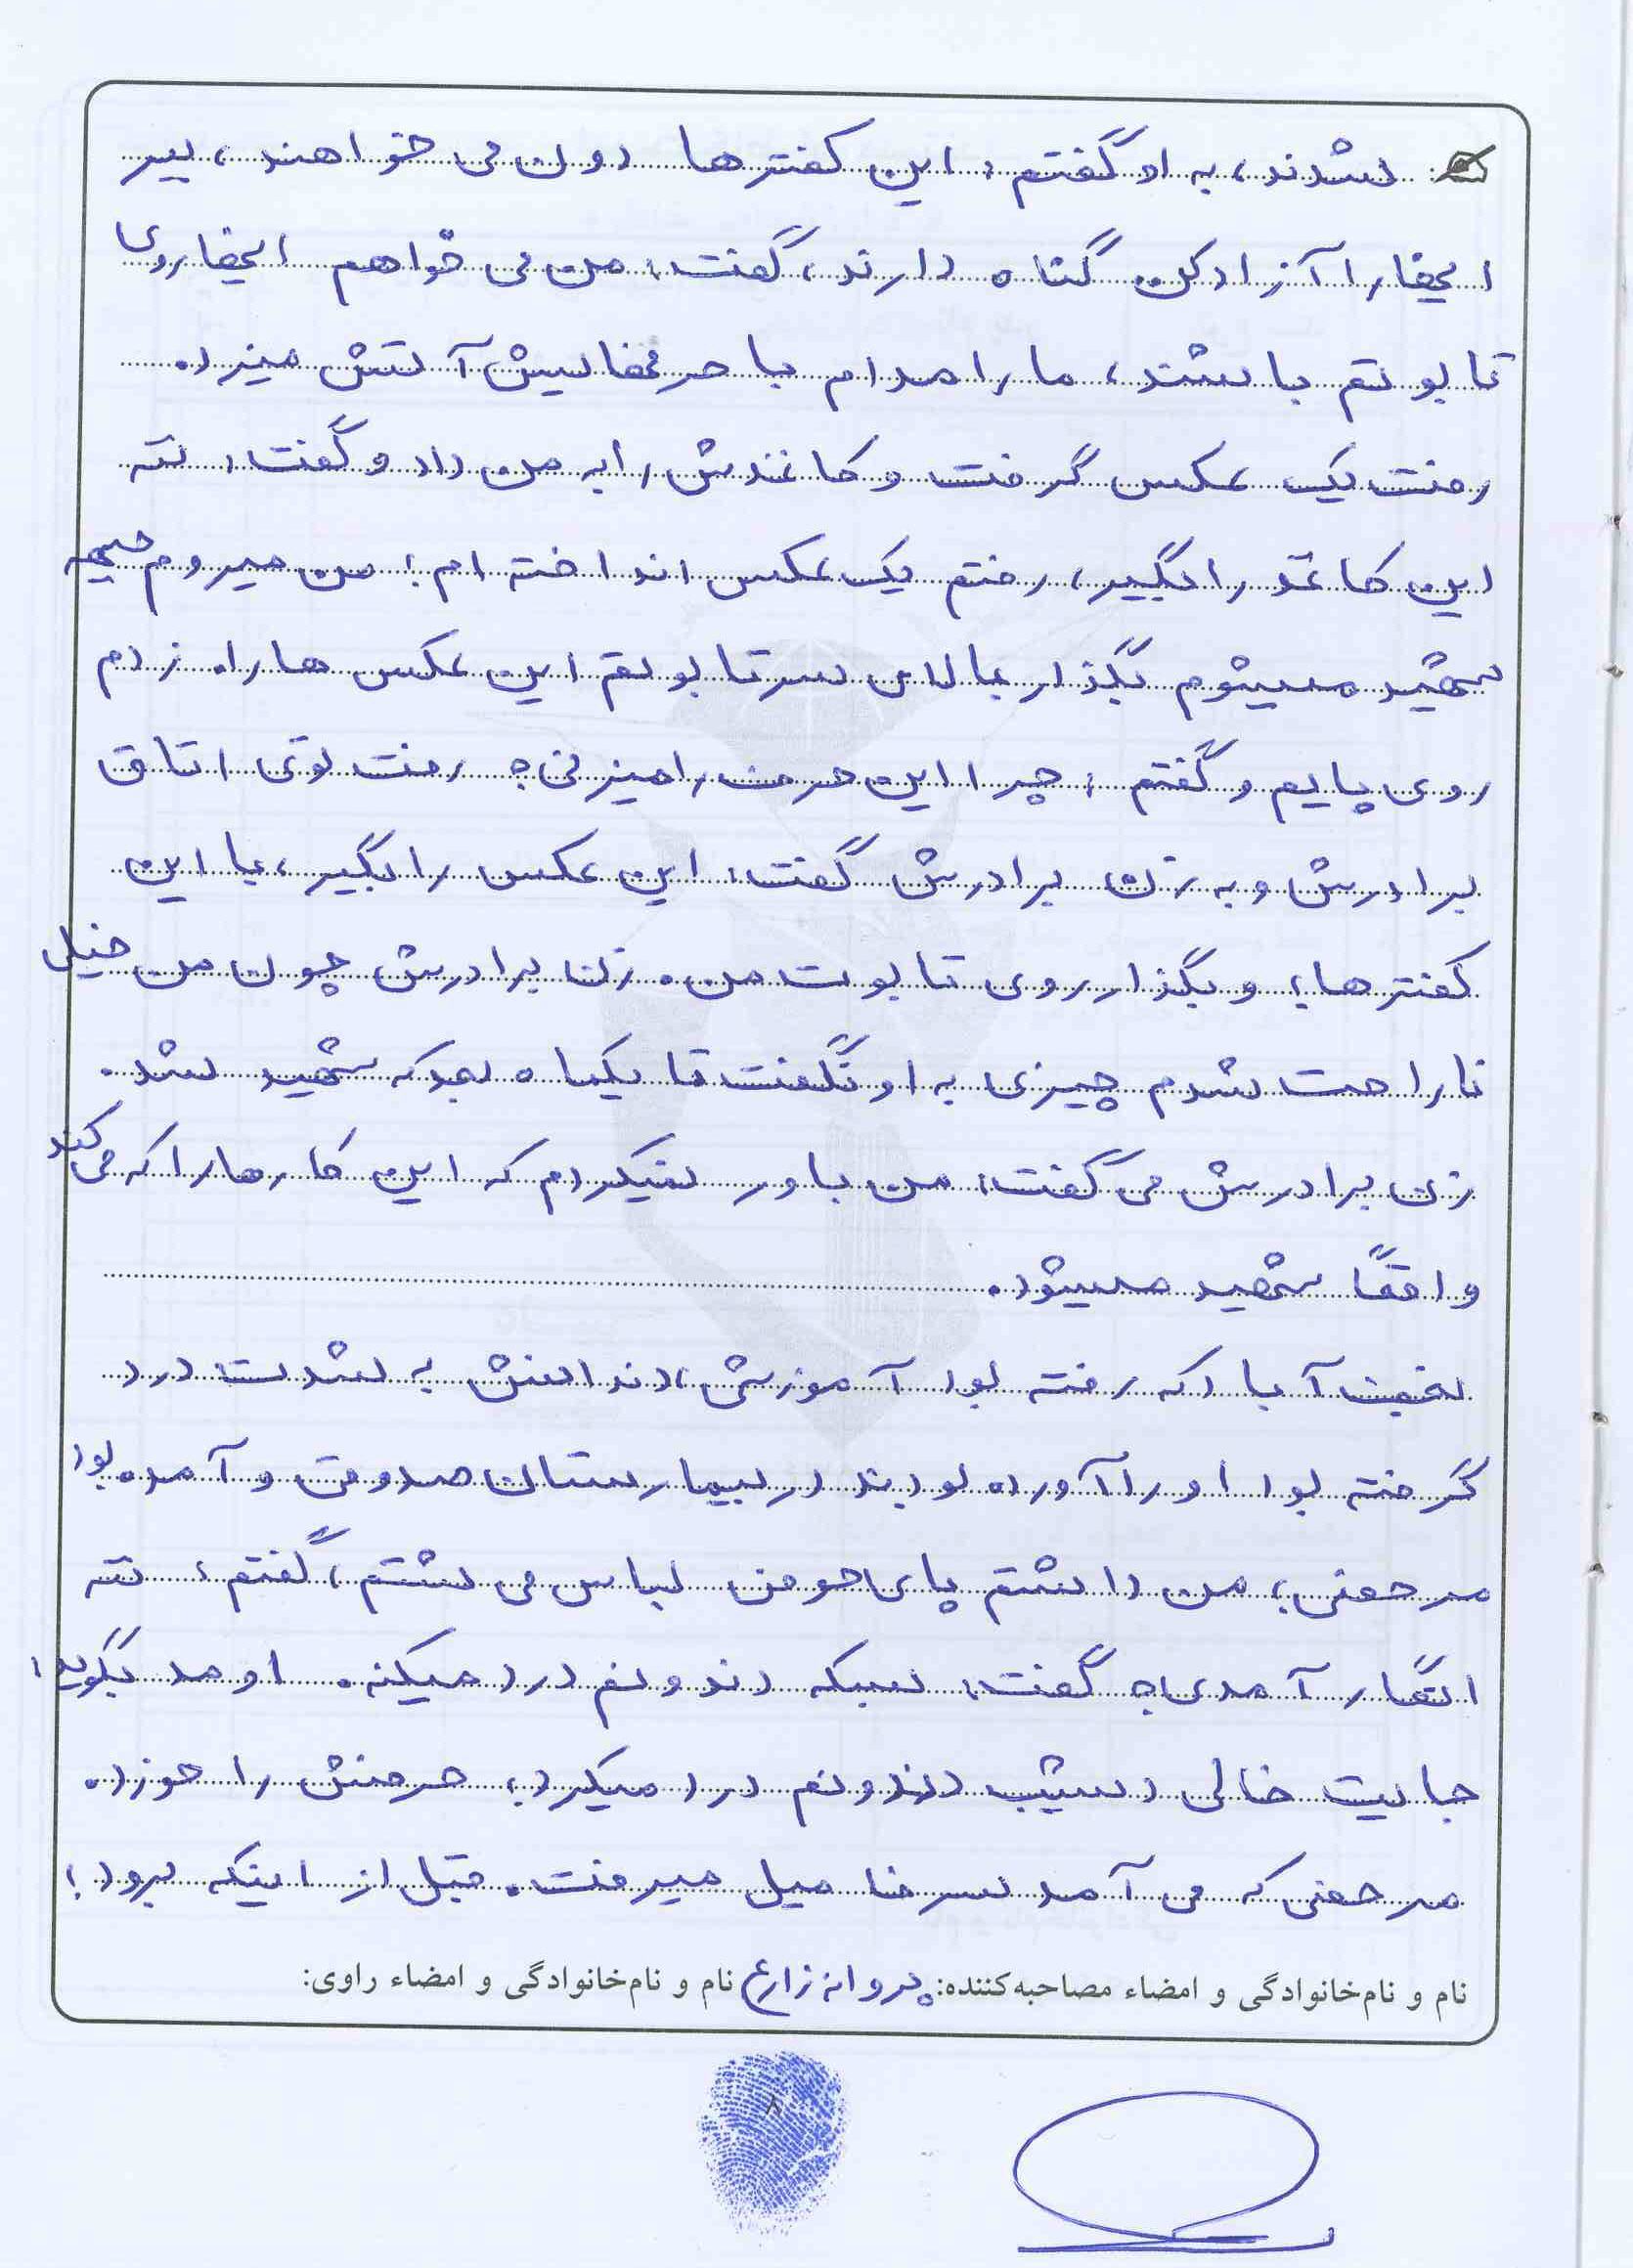 شدند، به او گفتم: این کفترها دون می خواهند، ببر
اینها را آزاد کن گناه دارند، گفت: من می خواهم اینها روی
تابوتم باشند، ما را مدام با حرفهایش آتش میزد.
رفت یک عکس گرفت و کاغذش را به من داد و گفت: ننه
این کاغذ را بگیر، رفتم یک عکس انداخته ام؛ من میروم جبهه
شهید میشوم بگذار بالای سر تابوتم این عکس ها را. زدم
روی پایم و گفتم: چرا این حرف را میزنی؟ رفت توی اتاق
برادرش و به زن برادرش گفت: این عکس را بگیر، با این
کفترها؛ و بگذار روی تابوت من. زن برادرش چون من خیلی
ناراحت شدم چیزی به او نگفت تا یکماه بعد که شهید شد.
زن برادرش می گفت: من باور نمیکردم که این کارها را که می کند
واقعاً شهید میشود.
نجف آباد که رفته بود آموزشی، دندانش به شدت درد
گرفته بود او را آورده بودند در بیمارستان صدوقی و آمده بود
مرخصی؛ من داشتم پای حوض لباس می شستم، گفتم: ننه
انگار آمدی؟ گفت: بسکه دندونم درد میکنه. اومد بگوید:
جایت خالی دیشب دندونم درد میکرد؛ حرفش را خورد.
مرخصی که می آمد سر فامیل میرفت. قبل از اینکه برود؛
نام و نام‌خانوادگی و امضاء مصاحبه‌کننده: پروانه زارع نام و نام‌خانوادگی و امضاء راوی:
۸